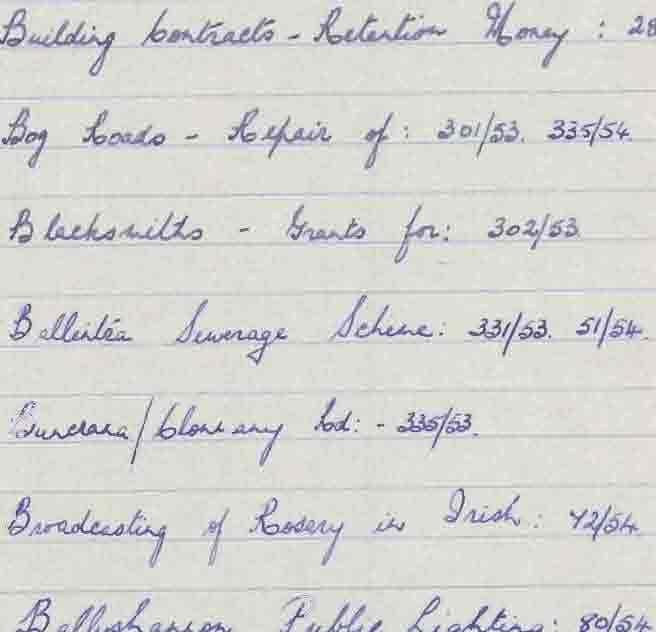 Building Contracts - Retention Money : 28
Bog Roads - Repair of : 301/53. 335/54.
Blacksmiths - Grants for: 302/53.
Ballintra Sewerage Scheme: 331/53. 51/54.
Buncrana/Clonmany Rd: - 335/53.
Broadcasting of Rosary in Irish: 42/54.
Ballyshannon Public Lighting: 80/54